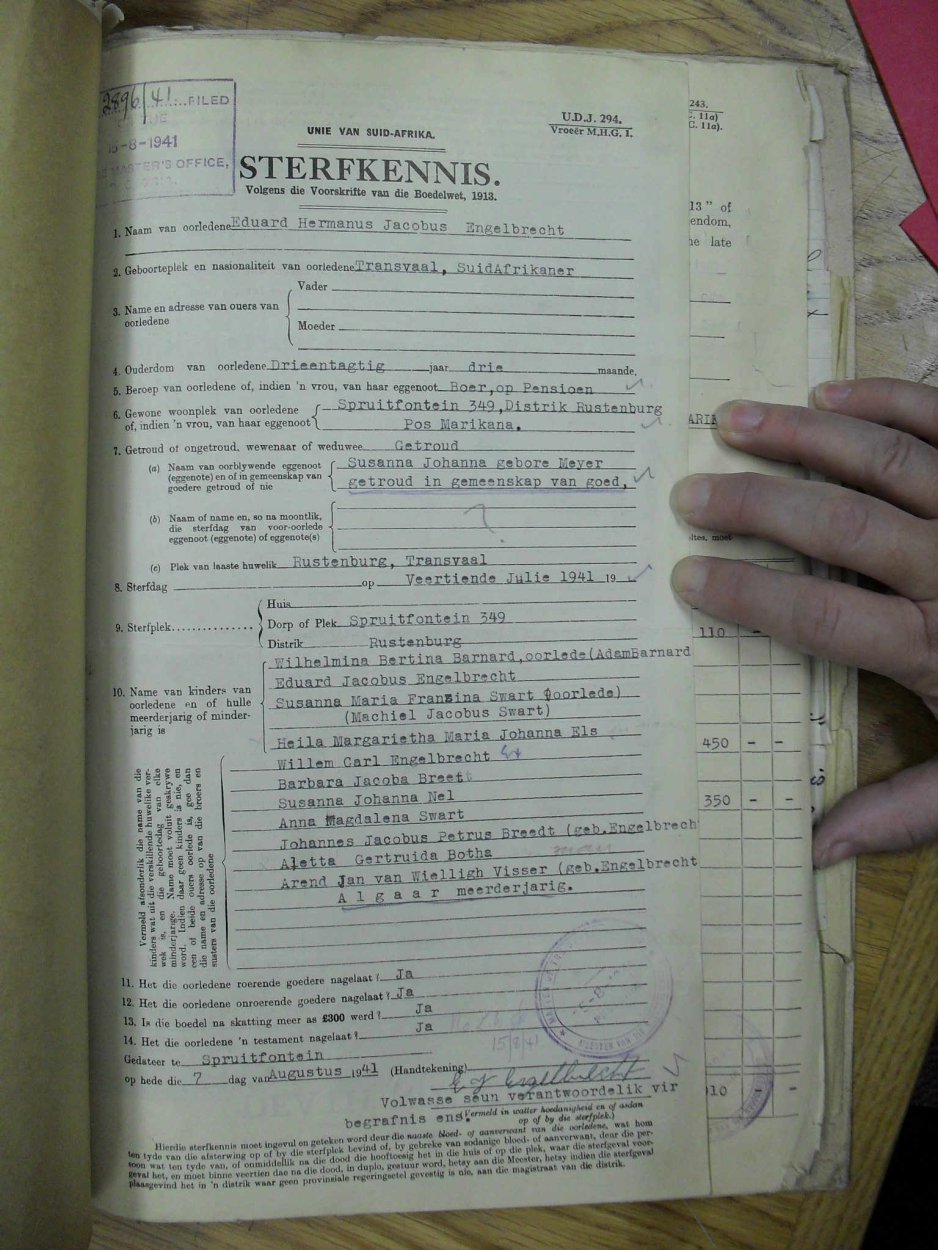 2896/41 FILED
-8-1941
MASTER'S OFFICE,
UNIE VAN SUID-AFRIKA.
U.D.J. 294.
Vroeër M.H.G. 1.
STERFKENNIS.
Volgens die Voorskrifte van die Boedelwet, 1913.
1. Naam van oorledene Eduard Hermanus Jacobus Engelbrecht
2. Geboorteplek en nasionaliteit van oorledene Transvaal, SuidAfrikaner
3. Name en adresse van ouers van oorledene
Vader
Moeder
4. Ouderdom van oorledene Drieentagtig jaar drie maande,
5. Beroep van oorledene of, indien 'n vrou, van haar eggenoot Boer, op Pensioen
6. Gewone woonplek van oorledene of, indien 'n vrou, van haar eggenoot
Spruitfontein 349, Distrik Rustenburg
Pos Marikana.
7. Getroud of ongetroud, wewenaar of weduwee Getroud
(a) Naam van oorblywende eggenoot (eggenote) en of in gemeenskap van goedere getroud of nie
Susanna Johanna gebore Meyer
getroud in gemeenskap van goed,
(b) Naam of name en, so na moontlik, die sterfdag van voor-oorlede eggenoot (eggenote) of eggenote(s)
?
(c) Plek van laaste huwelik Rustenburg, Transvaal
8. Sterfdag op Veertiende Julie 1941 19
9. Sterfplek
Huis
Dorp of Plek Spruitfontein 349
Distrik Rustenburg
10. Name van kinders van oorledene en of hulle meerderjarig of minderjarig is
Wilhelmina Bertina Barnard, oorlede (Adam Barnard
Eduard Jacobus Engelbrecht
Susanna Maria Franzina Swart (oorlede)
(Machiel Jacobus Swart)
Heila Margarietha Maria Johanna Els
Willem Carl Engelbrecht
Barbara Jacoba Breet
Susanna Johanna Nel
Anna Magdalena Swart
Johannes Jacobus Petrus Breedt (geb. Engelbrech
Aletta Gertruida Botha
Arend Jan van Wielligh Visser (geb. Engelbrecht
Algaar meerderjarig.
Vermeld afsonderlik die name van die
kinders wat uit die verskillende huwelike verwek
is, en die geboortedag van elke
minderjarige. Name moet voluit geskrywe
word. Indien daar geen kinders is nie, en
een of beide ouers oorlede is, gee dan
die name en adresse op van die broers en
susters van die oorledene
11. Het die oorledene roerende goedere nagelaat? Ja
12. Het die oorledene onroerende goedere nagelaat? Ja
13. Is die boedel na skatting meer as £300 werd? Ja
14. Het die oorledene 'n testament nagelaat? Ja
15/8/41
Gedateer te Spruitfontein
op hede die 7 dag van Augustus 1941 (Handtekening) E J Engelbrecht
Volwasse seun verantwoordelik vir
begrafnis ens.
(Vermeld in watter hoedanigheid en of aldan op of by die sterfplek.)
Hierdie sterfkennis moet ingevul en geteken word deur die naaste bloed- of aanverwant van die oorledene, wat hom
ten tyde van die afsterwing op of by die sterfplek bevind of, by gebreke van sodanige bloed- of aanverwant, deur die persoon
wat ten tyde van, of onmiddellik na die dood die hooftoesig het in die huis of op die plek, waar die sterfgeval voorgeval
het, en moet binne veertien dae na die dood, in duplo, gestuur word, hetsy aan die Meester, hetsy indien die sterfgeval
plaasgevind het in 'n distrik waar geen provinsiale regeringsetel gevestig is nie, aan die magistraat van die distrik.
243.
11a)
C. 11a).
13" of
endom,
he late
ARI
moet
110
450 - -
350 - -
010 - -